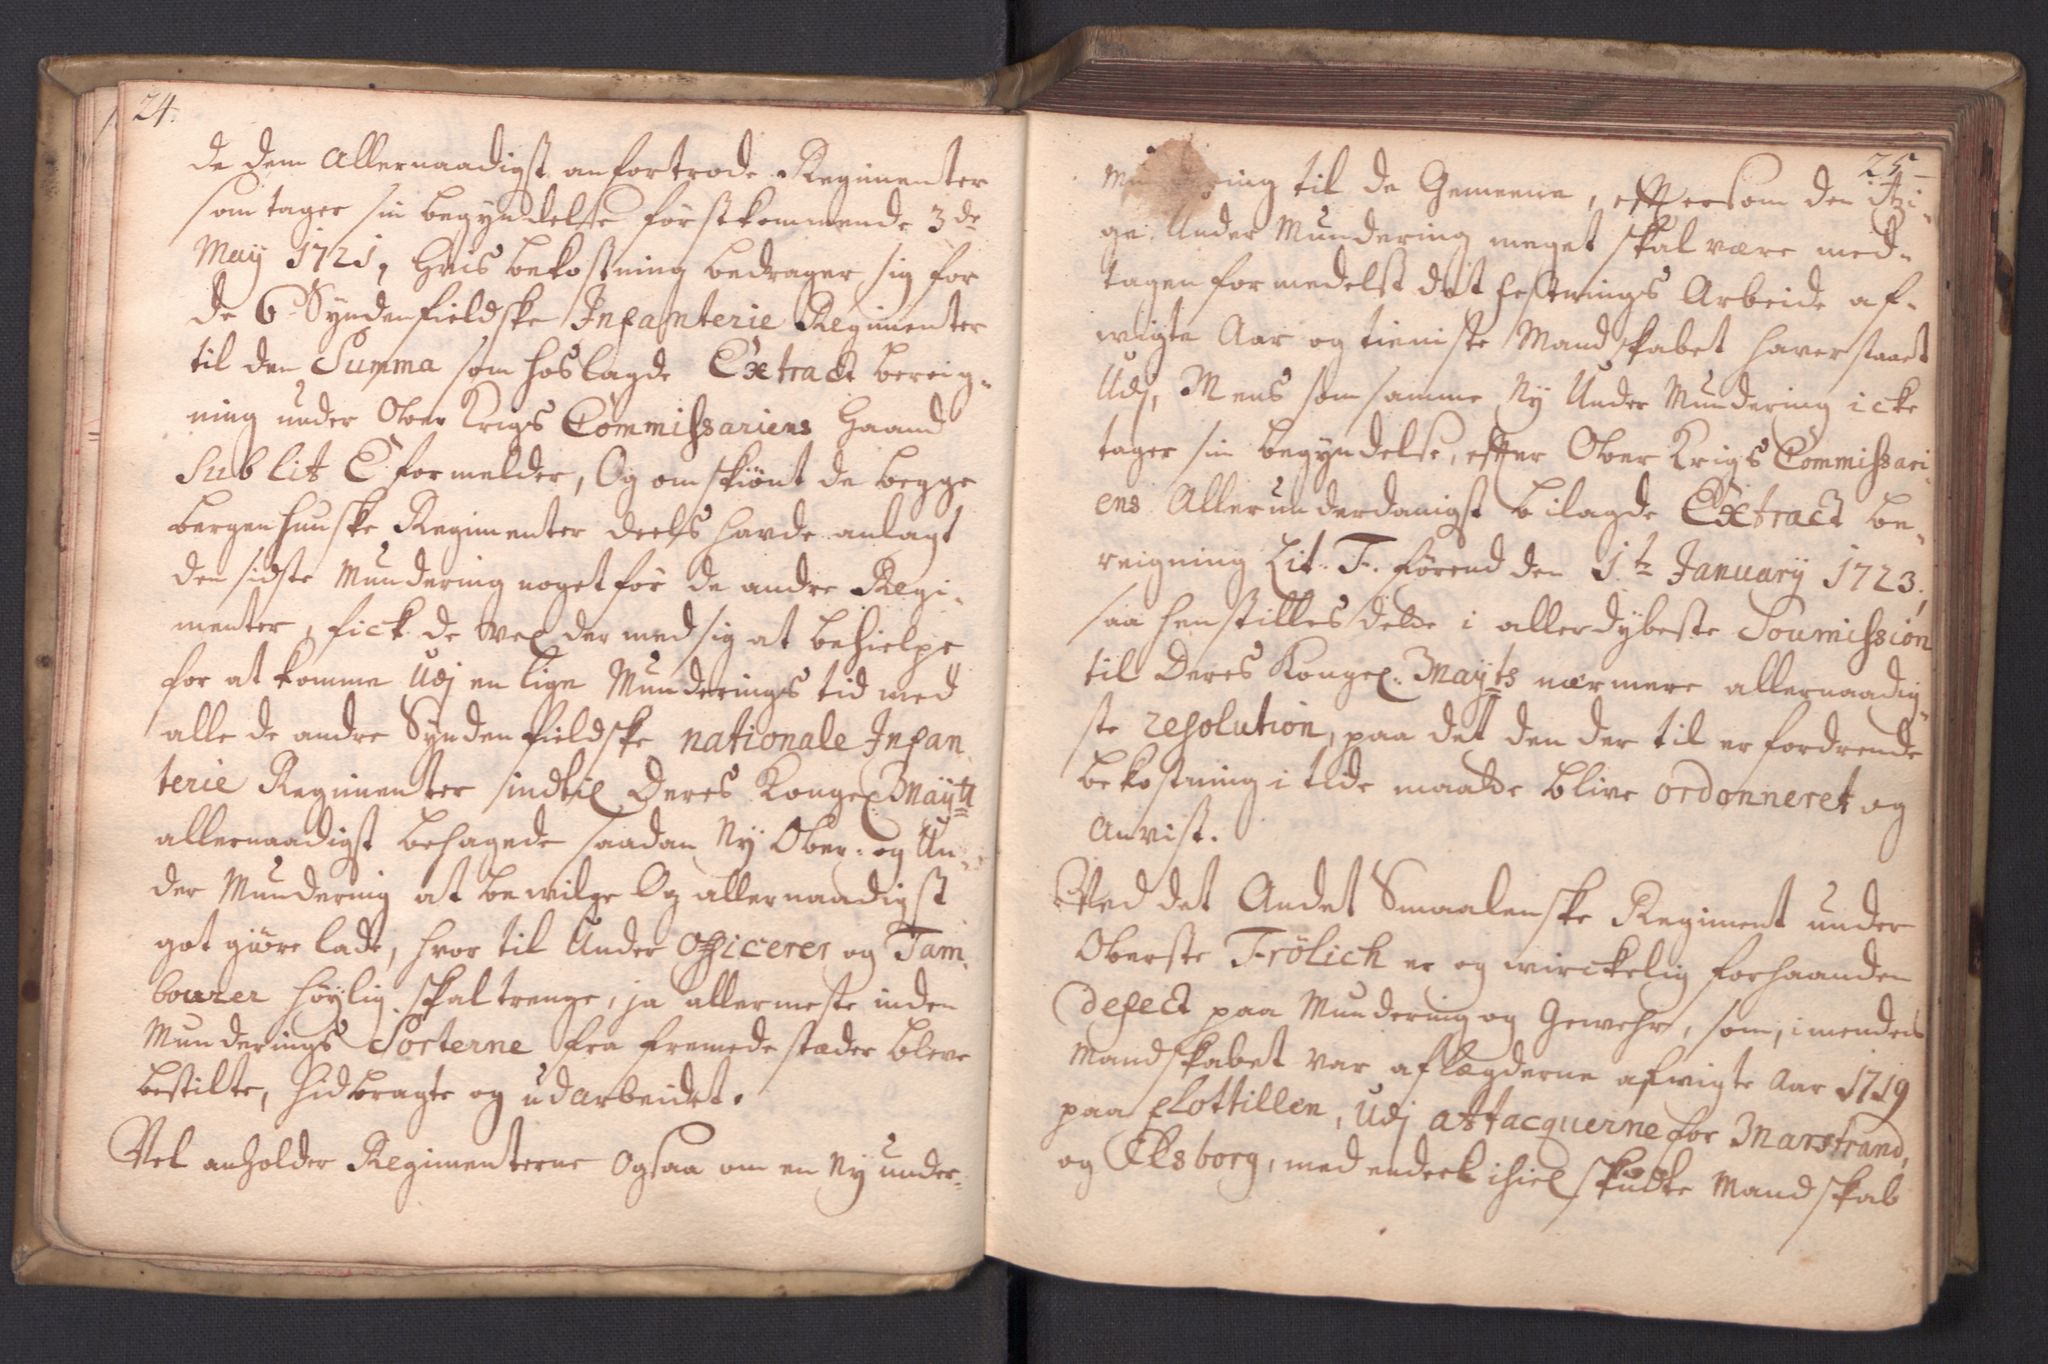 24.
de dem Allernaadigst anfortrode Regimenter
som tager sin begyndelse förstkommende 3de
May 1721, Hvis bekostning bedrager sig for
de 6 Syndenfieldske Infanterie Regimenter
til den Summa som hoslagde Extract bereig-
ning under Ober Krigs Commissariens Haand
Sub Lit: E formelder, Og omskiönt de begge
bergenhuuske Regimenter deels hafde anlagt
den sidste Mundering noget för de andre Regi-
menter, fick de vel der med sig at behielpe
for at komme Udj en lige Munderings tid med
alle de andre Syndenfieldske nationale Infan
terie Regimenter indtil Deres Kongel: Mayts
allernaadigst behagede saadan Ny Ober- og Un-
der Mundering at bewilge Og allernaadigst
got giöre lade, hvor til Under Officerer og Tam,
bourer höylig skal trenge, ja allermeste inden
Munderings Sorterne fra fremede stæder bleve
bestilte, hidbragte og udarbeidet.
Vel anholder Regimenterne Ogsaa om en Ny under-
25
ring til de Gemeene, effersom den itzi-
ge Under Mundering meget skal være med-
tagen formedelst det festnings Arbeide af-
wigte Aar og tieniste Mandskabet haver staaet
Udj, Mens som samme Ny Under Mundering icke
tager sin begyndelse, effter Ober Krigs Commissari-
ens Allerunderdanigst bilagde Extract be-
reigning Lit. F. förend den 1te January 1723,
saa henstilles dette i allerdybeste Soumission
til Deres Kongel: Mayts nærmere allernaadig-
ste resolution, paa det den der til erfordrende
bekostning i tide maatte blive ordonneret og
Anvist.
Ved det Andet Smaalenske Regiment under
Oberste Frölich er og wirckelig forhaanden
defect paa Mundering og Gewehr, som, i mendens
Mandskabet var aflægderne afwigte Aar 1719
paa flottillen, Udj attacquerne for Marstrand,
og Elsborg, med endeel ihiel skudte Mandskab